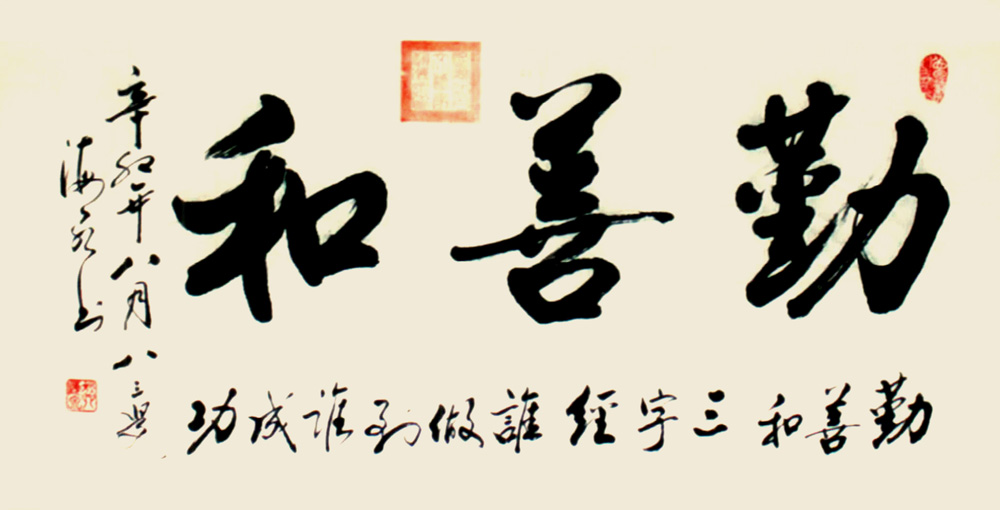 勤善和
勤善和三字經誰做到谁成功
辛卯年八月八
海书